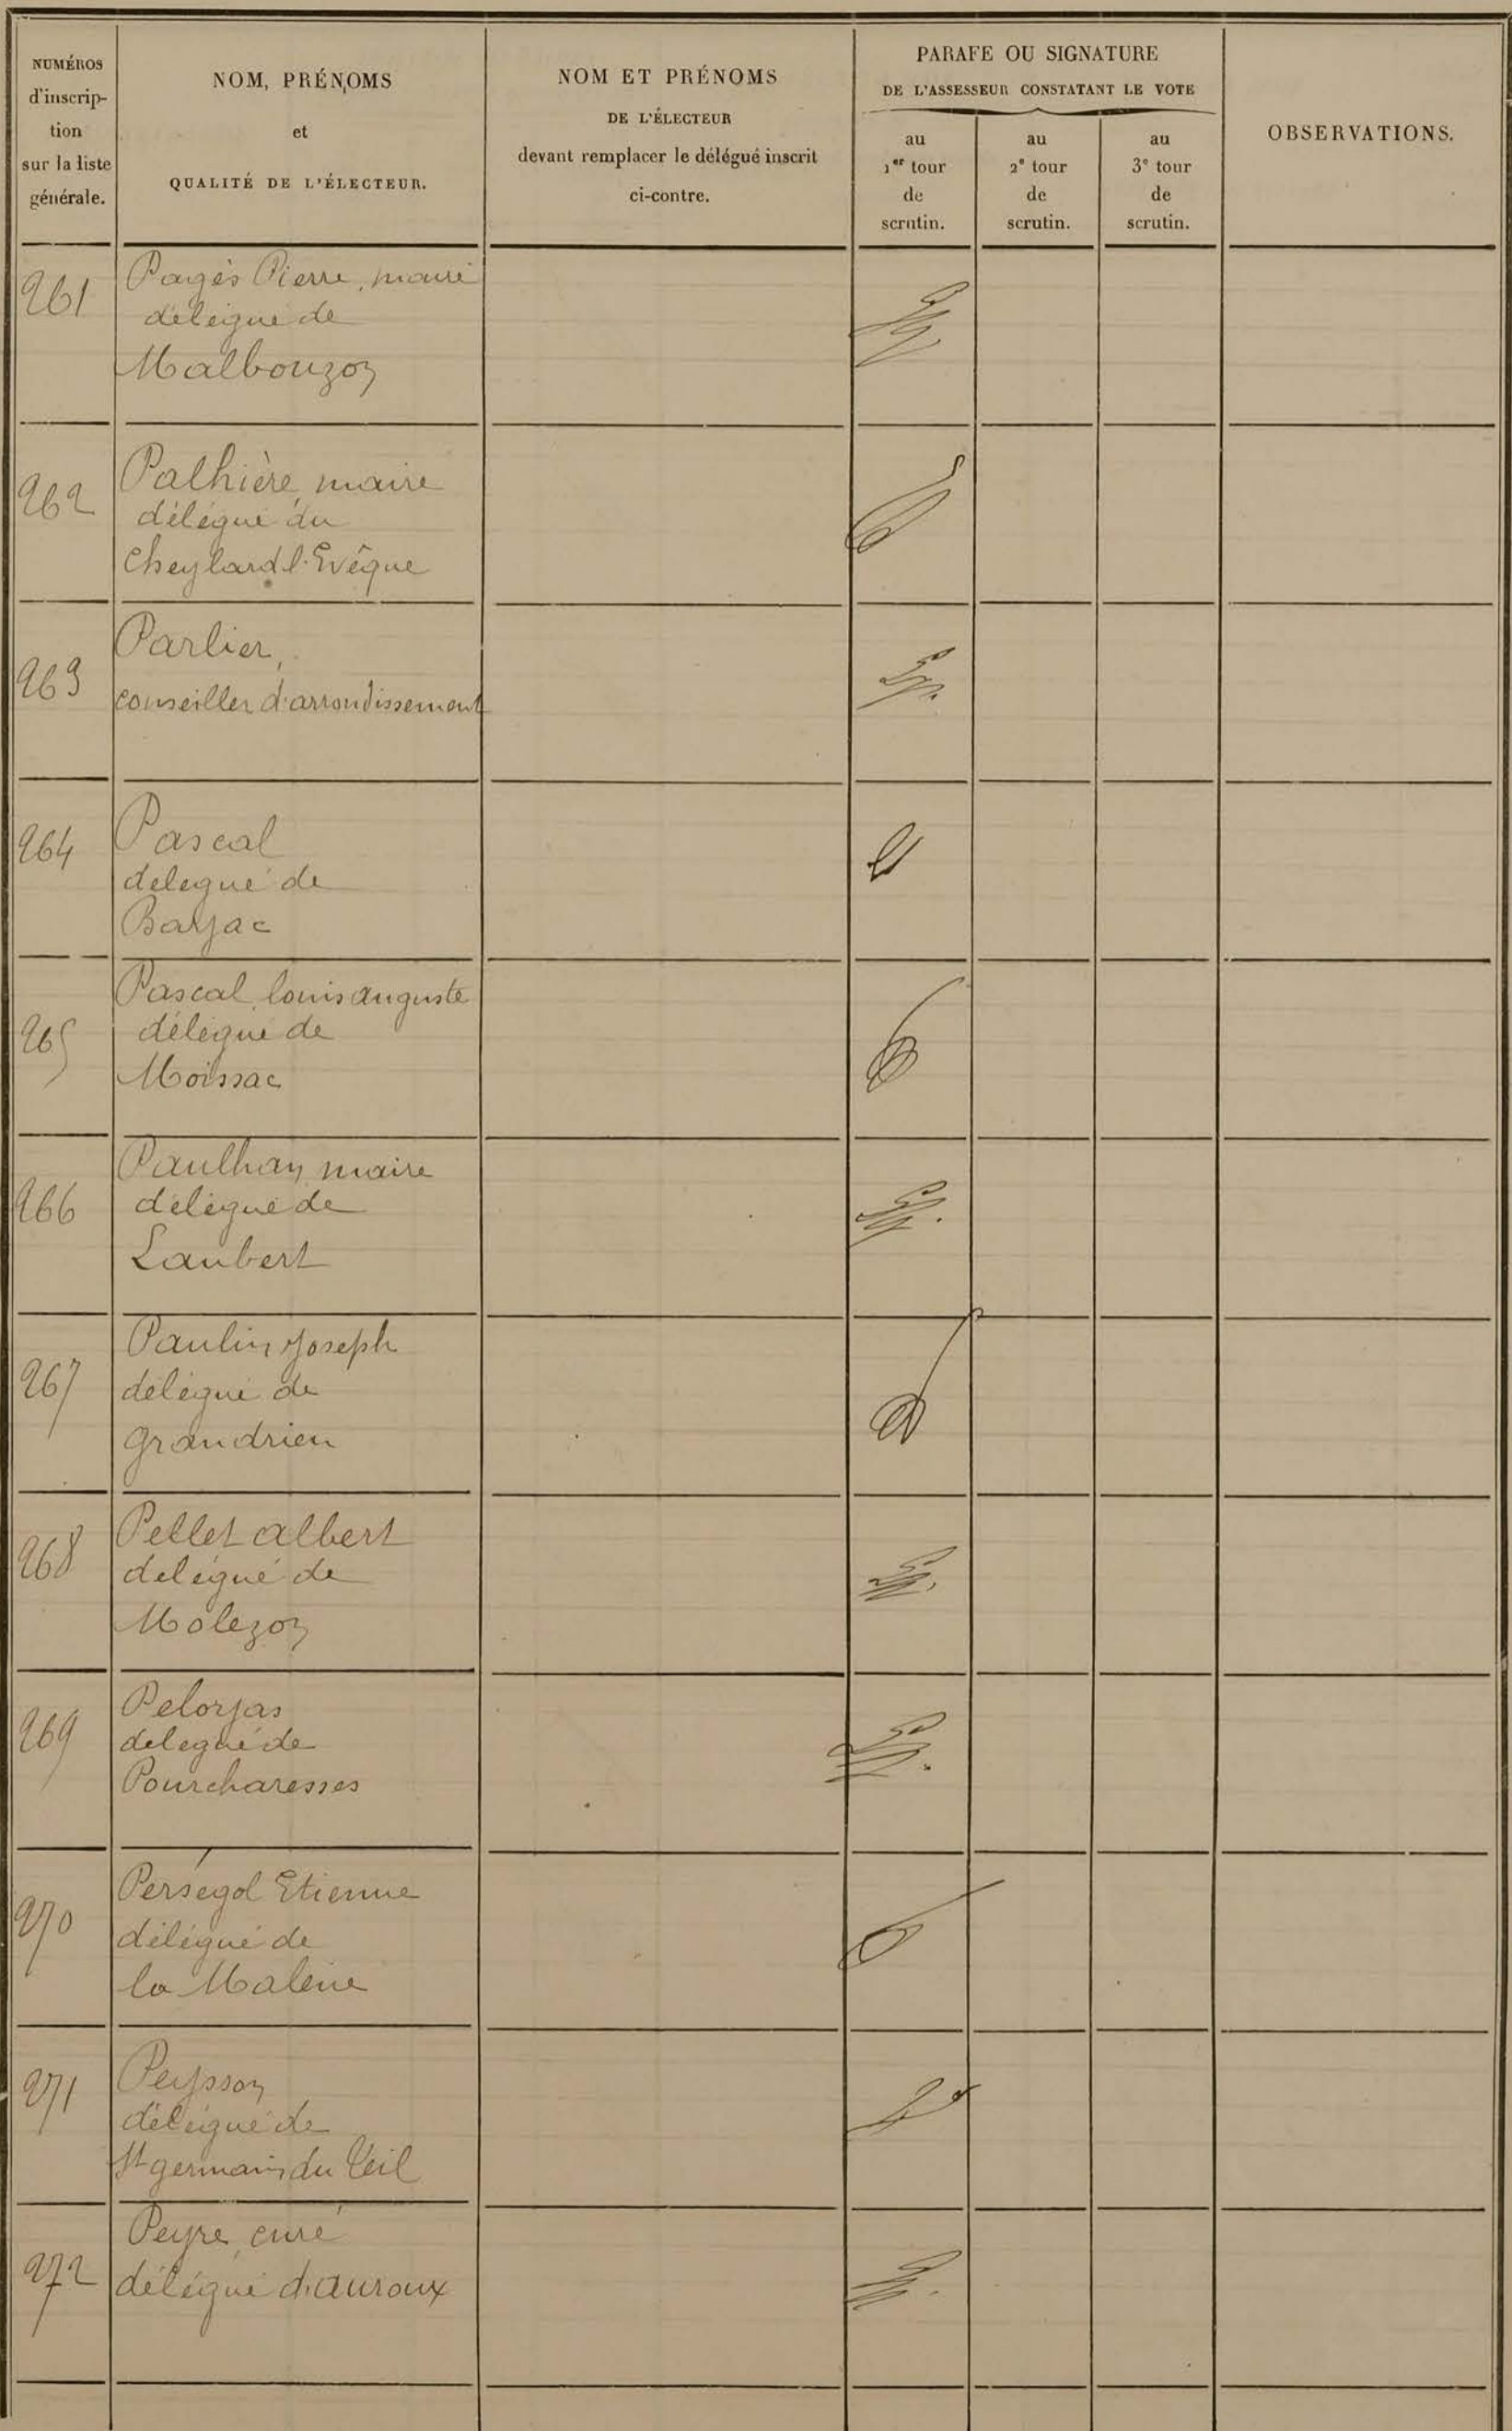 NUMÉROS
d'inscrip-
tion
sur la liste
générale.
NOM, PRÉNOMS
et
QUALITÉ DE L'ÉLECTEUR.
NOM ET PRÉNOMS
DE L'ÉLECTEUR
devant remplacer le délégué inscrit
ci-contre.
PARAFE OU SIGNATURE
DE L'ASSESSEUR CONSTATANT LE VOTE
au
1er tour
de
scrutin.
au
2e tour
de
scrutin.
au
3e tour
de
scrutin.
OBSERVATIONS.
261
Pagès Pierre, maire
délégué de
Malbouzon
262
Palhière, maire
délégué du
Cheylard l'Evêque
263
Parlier,
conseiller d'arrondissement
264
Pascal
delegué de
Barjac
265
Pascal louis auguste
délégué de
Moissac
266
Paulhan, maire
délégué de
Laubert
267
Paulin Joseph
délégué de
grandrieu
268
Pellet albert
delégué de
Molezon
269
Pelorjas
delegué de
Pourcharesses
270
Persegol Etienne
délégué de
la Malène
271
Peysson
délégué de
St germain du Teil
272
Peyre, curé
délégué d'auroux